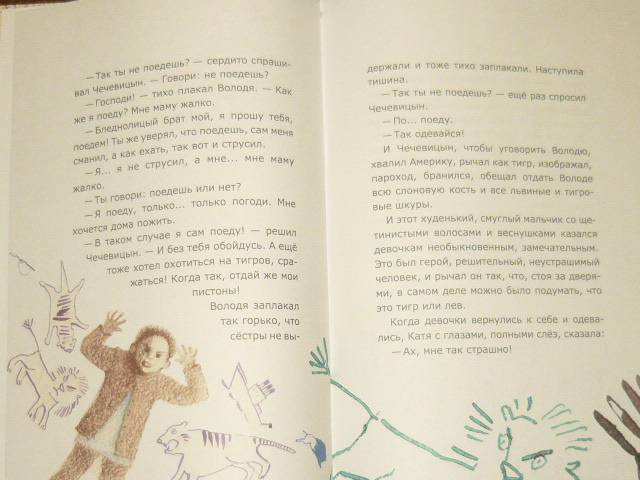 — Так ты не поедешь? — сердито спраши-
вал Чечевицын. — Говори: не поедешь?
— Господи! — тихо плакал Володя. — Как
же я поеду? Мне маму жалко.
— Бледнолицый брат мой, я прошу тебя,
поедем! Ты же уверял, что поедешь, сам меня
сманил, а как ехать, так вот и струсил.
— Я... я не струсил, а мне... мне маму
жалко.
— Ты говори: поедешь или нет?
— Я поеду, только... только погоди. Мне
хочется дома пожить.
— В таком случае я сам поеду! — решил
Чечевицын. — И без тебя обойдусь. А ещё
тоже хотел охотиться на тигров, сра-
жаться! Когда так, отдай же мои
пистоны!
Володя заплакал
так горько, что
сёстры не вы-
держали и тоже тихо заплакали. Наступила
тишина.
— Так ты не поедешь? — ещё раз спросил
Чечевицын.
— По... поеду.
— Так одевайся!
И Чечевицын, чтобы уговорить Володю,
хвалил Америку, рычал как тигр, изображал,
пароход, бранился, обещал отдать Володе
всю слоновую кость и все львиные и тигро-
вые шкуры.
И этот худенький, смуглый мальчик со ще-
тинистыми волосами и веснушками казался
девочкам необыкновенным, замечательным.
Это был герой, решительный, неустрашимый
человек, и рычал он так, что, стоя за дверя-
ми, в самом деле можно было подумать, что
это тигр или лев.
Когда девочки вернулись к себе и одева-
лись, Катя с глазами, полными слёз, сказала:
— Ах, мне так страшно!